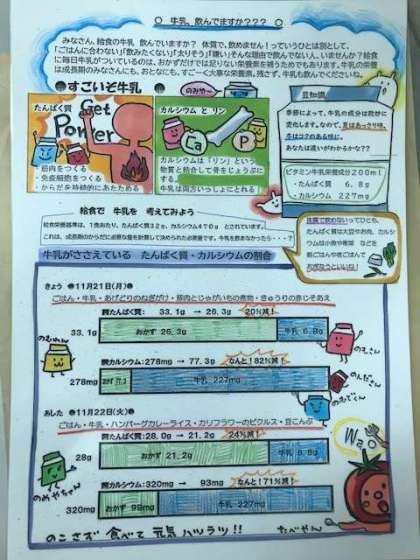 ○ 牛乳、飲んでますか??? ○
みなさん、給食の牛乳 飲んでいますか? 体質で、飲めません!っていうひとは別として、
「ごはんに合わない」「飲みたくない」「太りそう」「嫌い」そんな理由で飲んでない人、いませんか?給食
に毎日牛乳がついているのは、おかずだけでは足りない栄養素を補うためでもあります。牛乳の栄養
は成長期のみなさんにも、おとなにも、すご〜く大事な栄養源。残さず、牛乳も飲んでくださいね。
●すごいぞ牛乳
たんぱく質
Get
Power
・筋肉をつくる
・免疫細胞をつくる
・からだを持続的にあたためる
カルシウム と リン
Ca
P
カルシウムは「リン」という
物質と結合して骨をじょうぶに
する
牛乳は両方いっしょにとれる!
豆知識
季節によって、牛乳の成分は微妙に
変化します。なので、夏はあっさり味、
冬はコクのある味に。
あなたは違いがわかるかな??
ビタミン牛乳栄養成分200ml
・たんぱく質 6.8g
・カルシウム 227mg
給食で 牛乳を 考えてみよう
給食栄養基準は、1食あたり、たんぱく質32g、カルシウム470g とされています。
これは、成長期のからだに必要な量を計算して決められた必要量です。牛乳を飲まなかったら・・・?
体質で飲めないってひとも、
牛乳がささえている たんぱく質・カルシウムの割合
きょう ●11月21日(月)●
ごはん・牛乳・あげどりのねぎがけ・豚肉とじゃがいもの煮物・きゅうりの赤じそあえ
33.1g → 26.3g 20%減!
33.1g おかず 26.3g 牛乳 6.8g
カルシウム:278mg → 77.3g なんと!82%減!
278mg おかず 77.3 牛乳 227mg
あした ●11月22日(火)●
ごはん・牛乳・ハンバーグカレーライス・カリフラワーのピクルス・豆こんぶ
たんぱく質:28.0g → 21.2g 24%減!
28g おかず 21.2g 牛乳 6.8g
カルシウム:320mg → 93mg なんと!71%減!
320mg おかず 93mg 牛乳 227mg
のみややちゃん
Wao
のこさず 食べて 元気 ハツラツ!!
たべやん